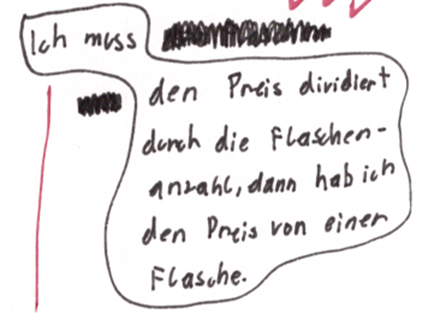 Ich muss
den Preis dividiert
durch die Flaschen-
anzahl, dann hab ich
den Preis von einer
Flasche.